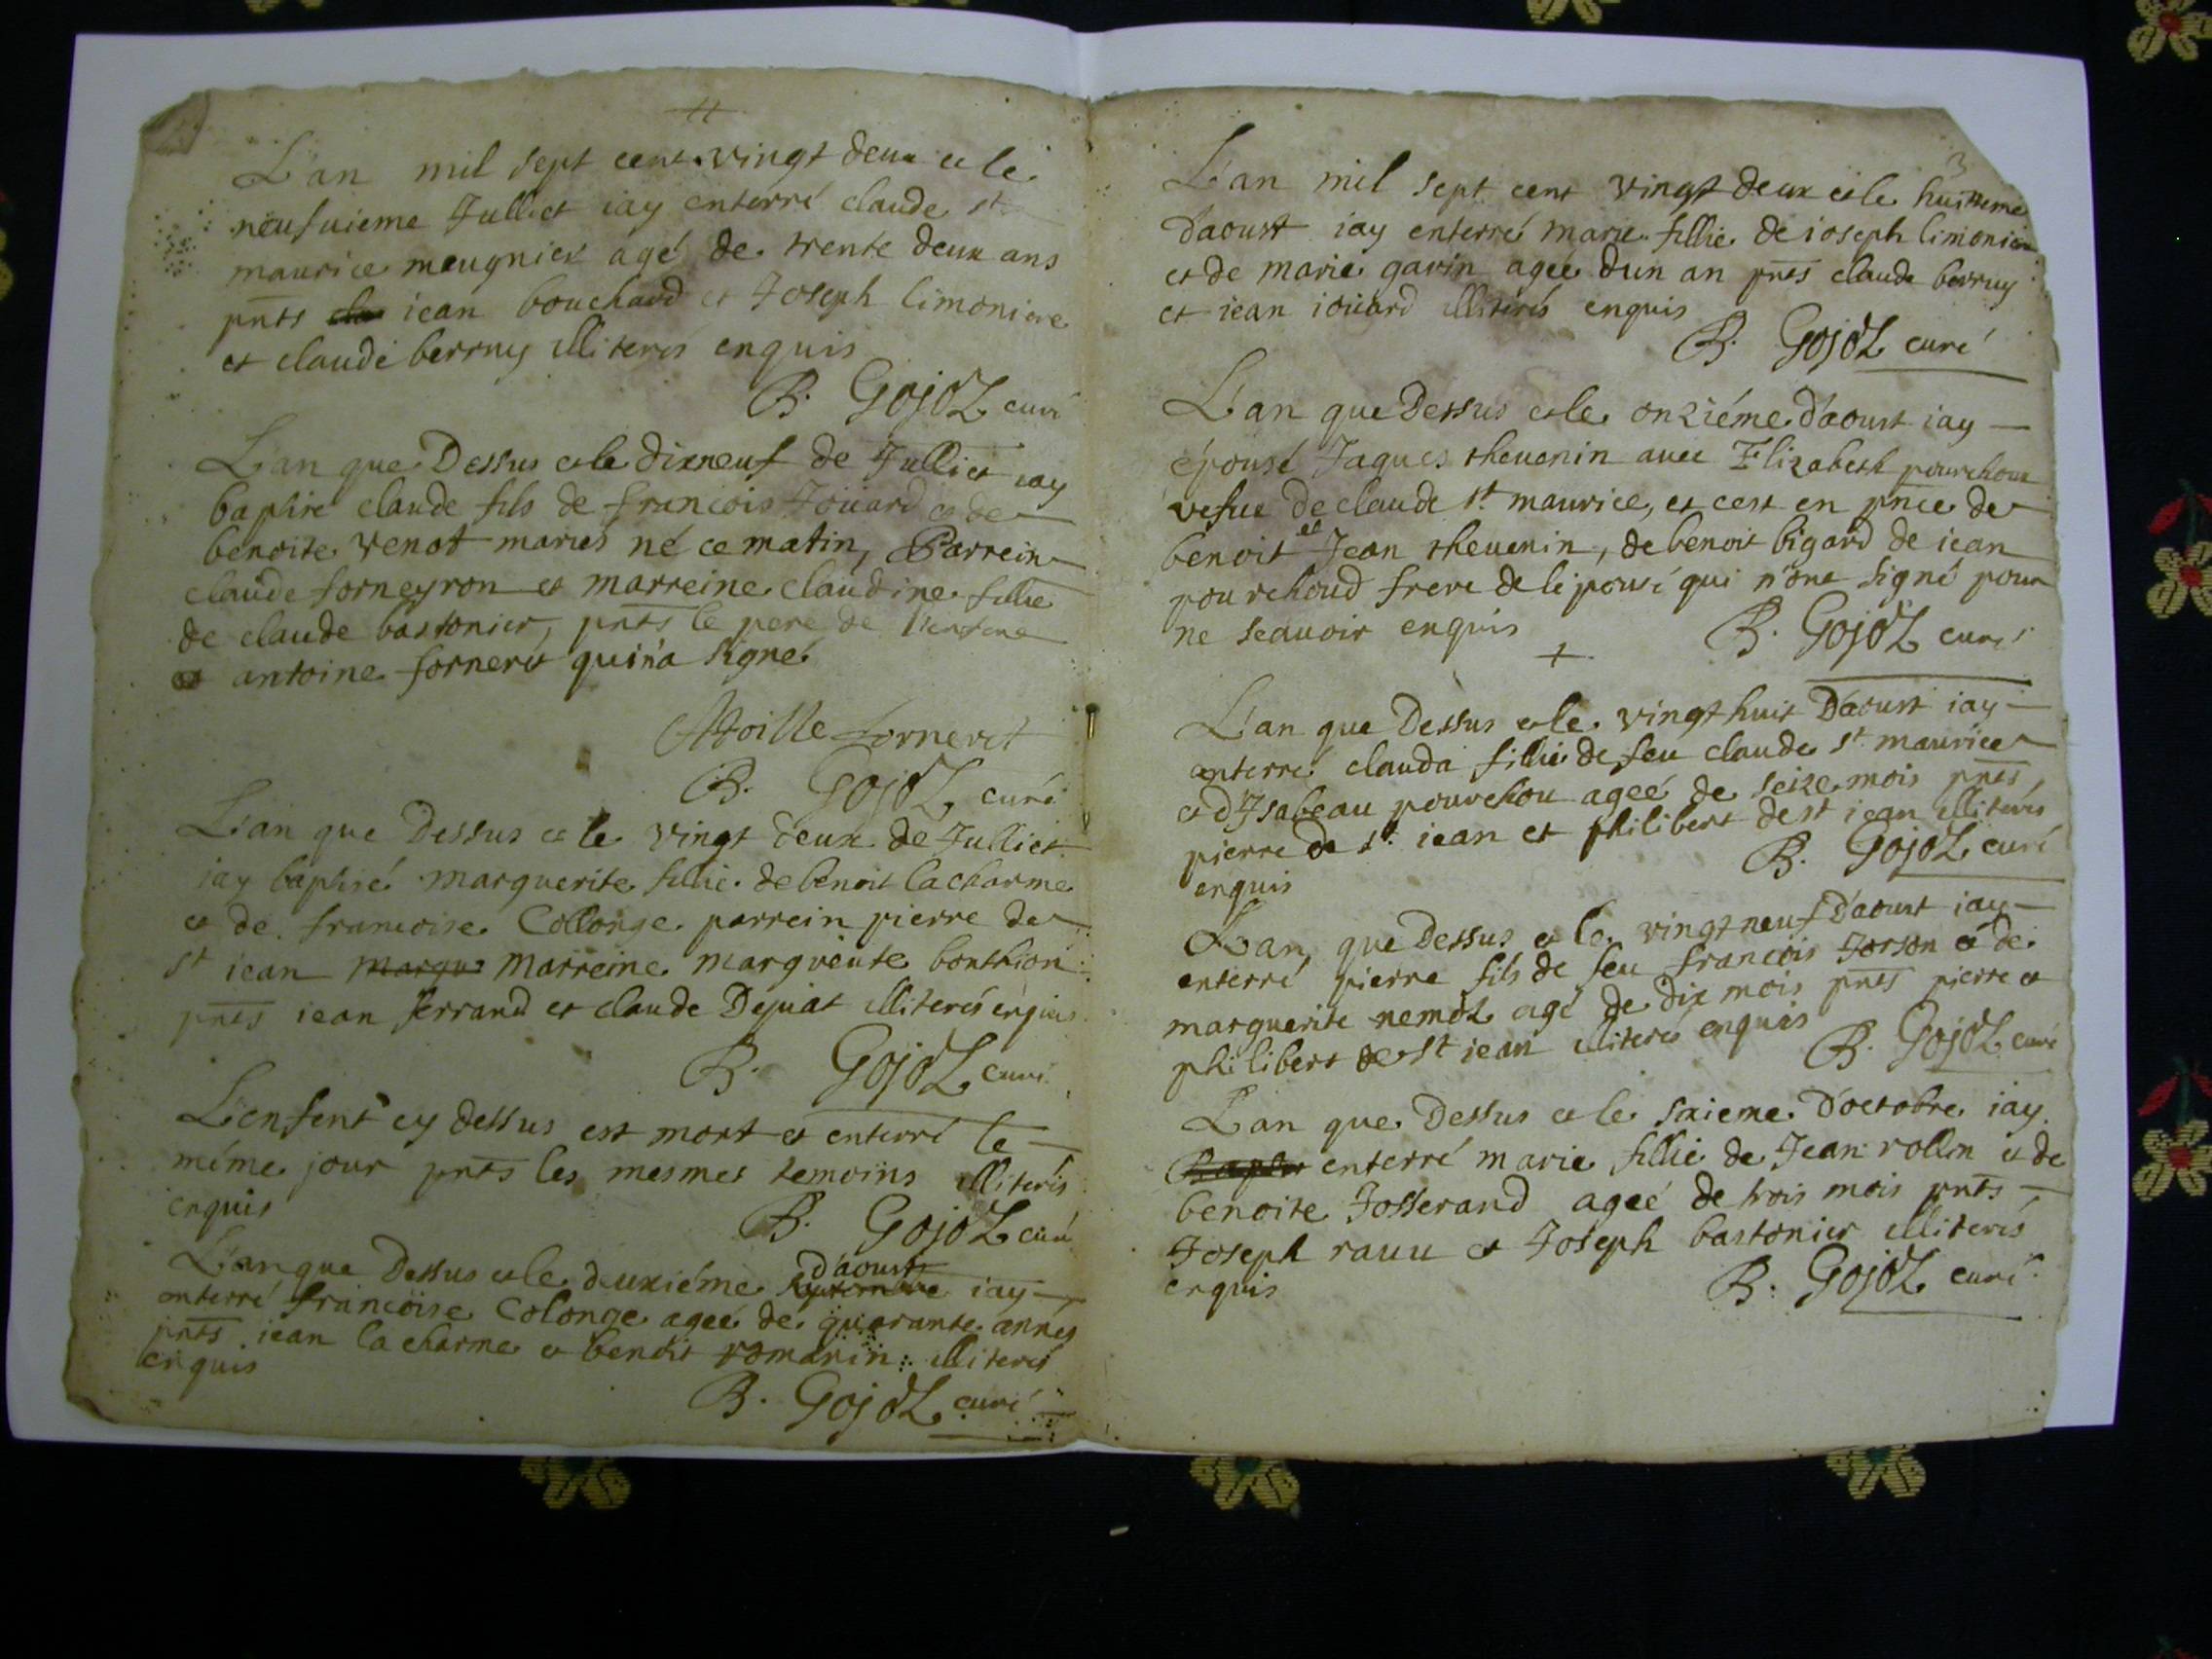 L'an mil sept cent vingt deux et le
neufuieme Julliet iay enterré claude st
maurice meugnier agé de trente deux ans
pnts iean bouchard et Joseph limoniere
et claude berruy illiterés enquis
B. Gojoz curé
L'an que Dessus et le dixneuf de Julliet iay
baptiré claude fils de francois Joüard et de
benoite venot mariés né ce matin, Parrein
claude forneyron et marreine claudine fillie
de claude bastonier, pnts le pere de l'enfent
et antoine forneret qui n'a signé
forneret
B. Gojoz curé
L'an que Dessus et le vingt deux de Julliet
iay baptisé marguerite fillie de benoit lacharme
et de francoise Collonge parrein pierre de
st iean margu Marreine marguerite bonthion
pnts iean ferrand et claude Dejiat illiterés enquis
B. Gojoz curé
L'enfent cy dessus est mort et enterré le
méme jour pnts les mesmes temoins illiterés
enquis
B. Gojoz curé
L'an que Dessus et le deuxiéme septembre d'aoust iay
enterré francoise Colonge ageé de quarante annes
pnts iean la charme et benoit romarin illiterés
enquis
B. Gojoz curé
3
L'an mil sept cent vingt deux et le huittieme
d'aoust iay enterré marie fillie de ioseph limoniere
et de marie gavin ageé d'un an pnts claude berruy
et iean ioüard illiterés enquis
B. Gojoz curé
L'an que Dessus et le onziéme d'aoust iay
épousé Jaques thevenin avec Elizabeth pourchoux
vefue de claude st maurice, et cest en pnce de
benoit et Jean thevenin, de benoit bigard de iean
pourchoud frere de lépousé qui n'ont signé pour
ne scavoir enquis
B. Gojoz curé
L'an que Dessus et le vingt huit D'aoust iay
enterré clauda fillie de feu claude st maurice
et d'Isabeau pourchou ageé de seize mois pnts
pierre de st iean et philibert de st iean illiterés
enquis
B. Gojoz curé
L'an que Dessus et le vingt neuf D'aoust iay
enterré pierre fils de feu francois Jorson et de
marguerite nemoz agé de dix mois pnts pierre et
philibert de st iean illiterés enquis
B. Gojoz curé
L'an que Dessus et le saieme d'octobre iay
enterré marie fillie de Jean rollin et de
benoite Josserand ageé de trois mois pnts
Joseph ravu et Joseph bastonier illiterés
enquis
B. Gojoz curé